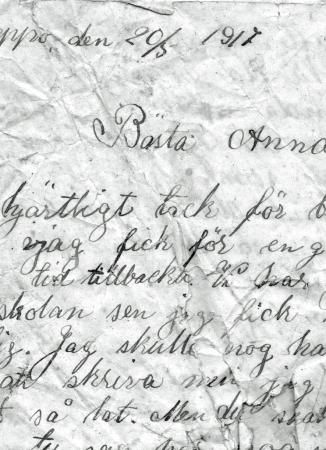 den 20/5 1917
Bästa Anna
hjärtligt tack för
jag fick för en
tid tillbacka Vi har
skolan sen jag fick
Jag skulle nog
skriva men jag
så lat. Men du